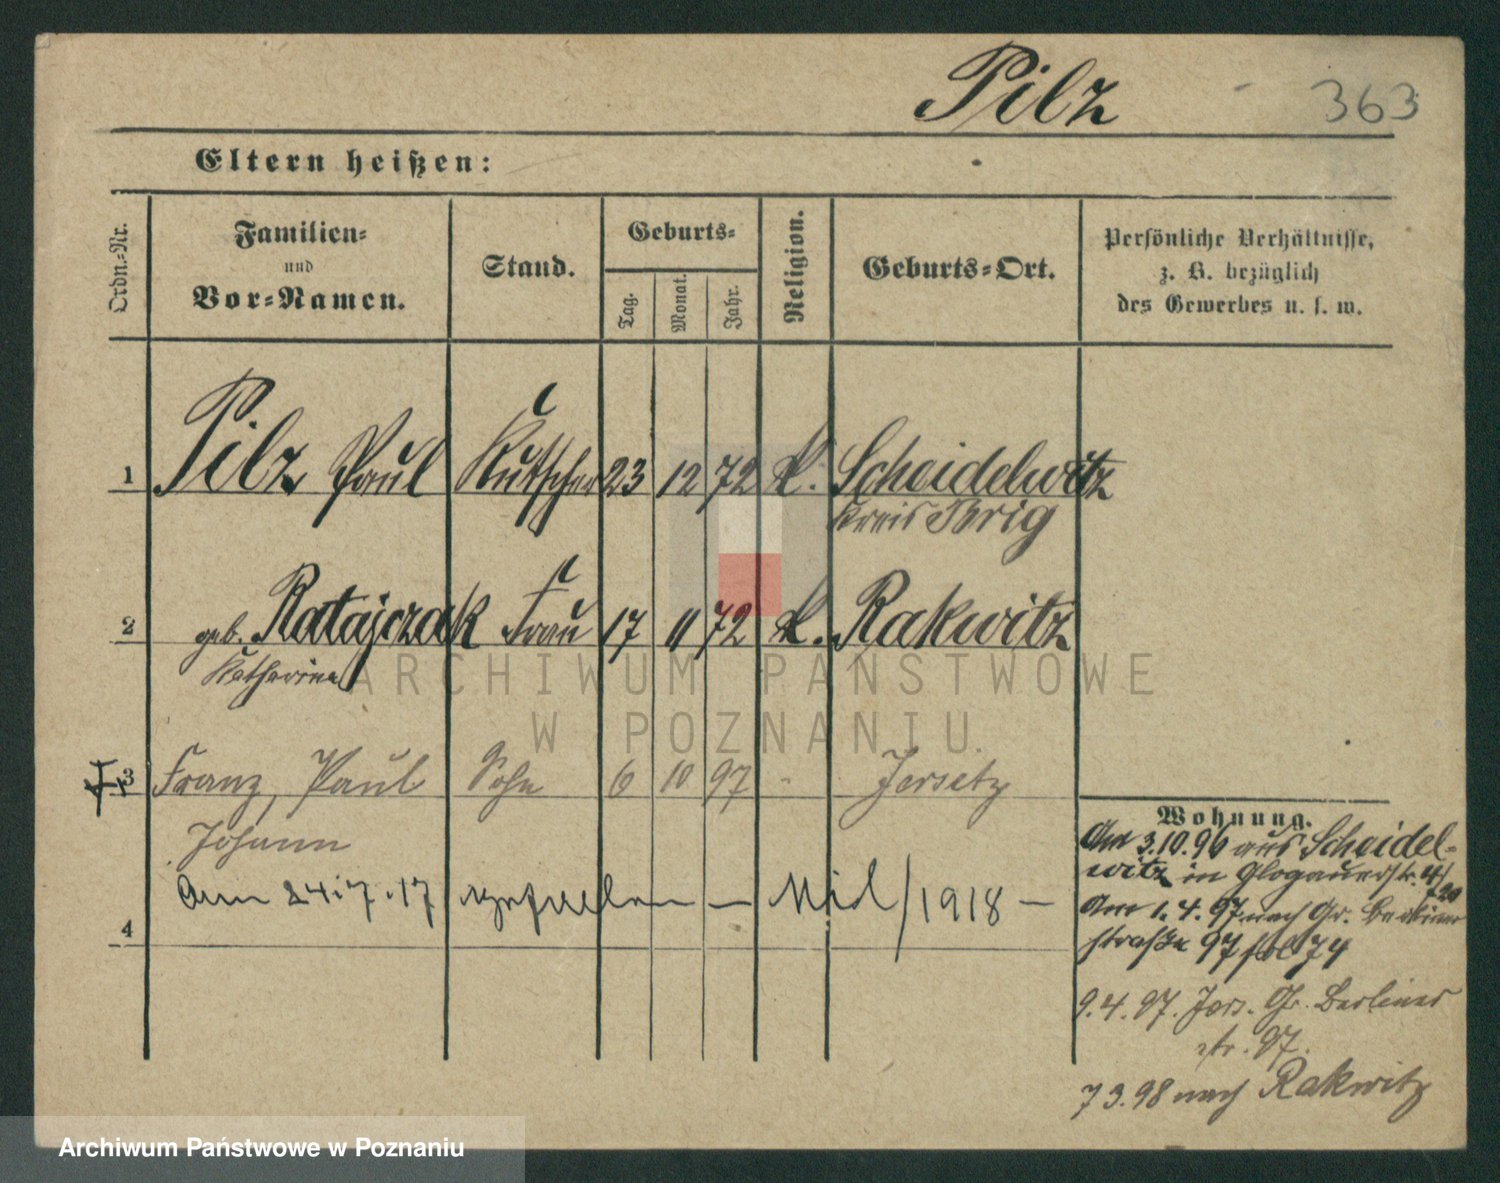 Pilz 363
Eltern heißen:
Ordn.-Nr.
Familien-
und
Vor-Namen.
Stand.
Geburts-
Tag.
Monat.
Jahr.
Religion.
Geburts-Ort.
Persönliche Verhältnisse,
z. B. bezüglich
des Gewerbes u. s. w.
1 Pilz Paul Kutscher 23 12 72 k. Scheidelwitz
Kreis Brieg
2 geb. Ratajczak Frau 17 11 72 k. Rakwitz
Katharina
3 Franz, Paul Sohn 6 10 97 - Jersitz
Johann
Am 24.7.17 - Mil/1918 -
4
Wohnung.
Am 3.10.96 aus Scheidel-
witz in Glogauerstr.
Am 1.4.97 nach Gr. Berliner
straße 97 fol 74
9.4.97. Jers. Gr. Berliner
str. 97.
7 3.98 nach Rakwitz
ARCHIWUM PAŃSTWOWE
W POZNANIU.
Archiwum Państwowe w Poznaniu